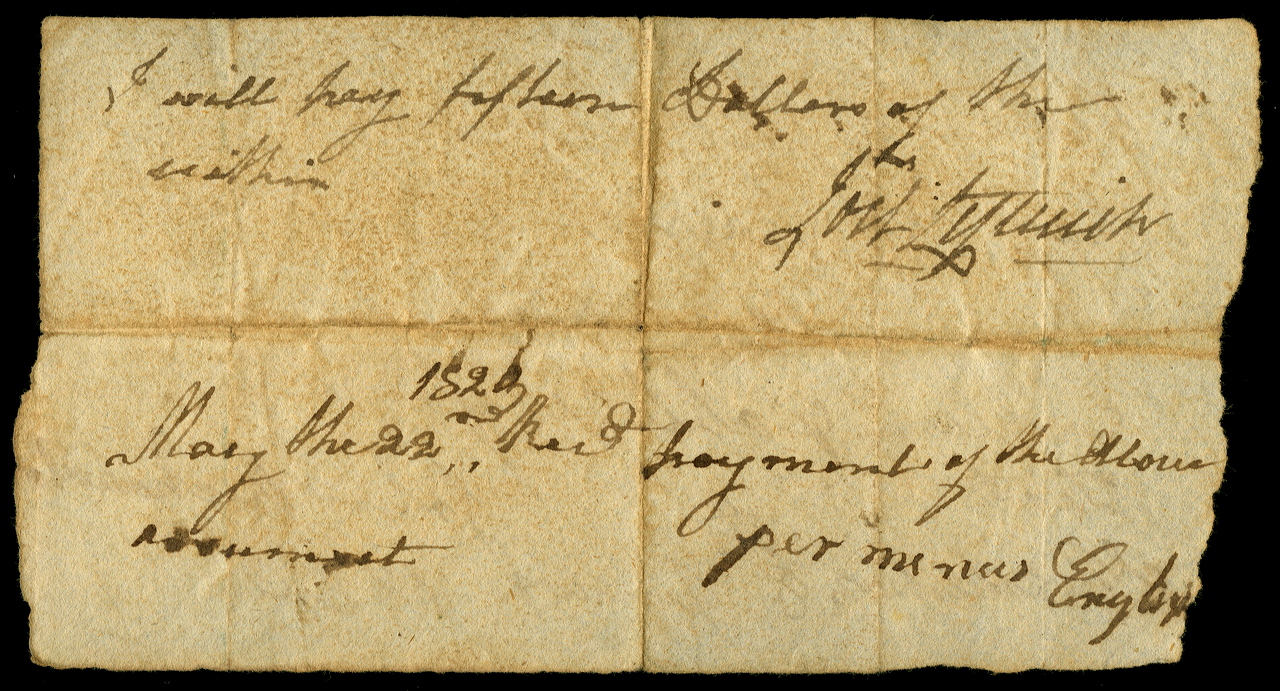 I will pay fifteen Dollars of the
within
Jos
182
May the 22nd Recd payment of the above
per me English